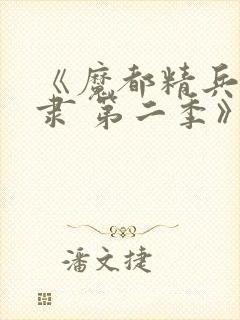 《魔都精兵
隶 第二季》
潘文捷